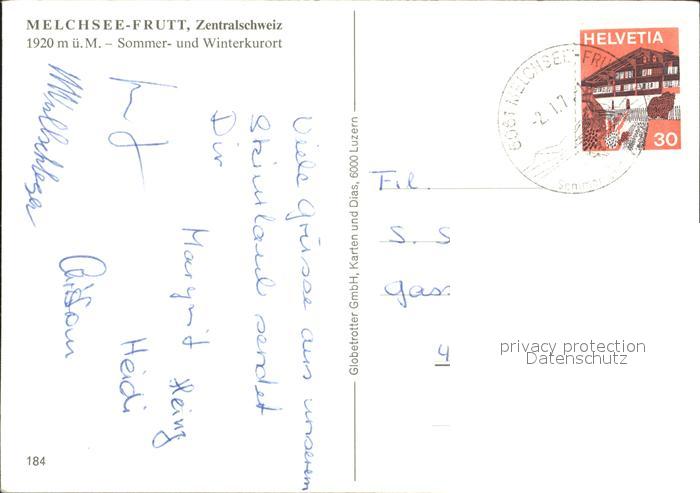 MELCHSEE-FRUTT, Zentralschweiz
1920 m ü. M. – Sommer- und Winterkurort
Viele Grüsse aus unserem
Skiurlaub sendet
Dir
Margrit Heinz
Heidi
Globetrotter GmbH, Karten und Dias, 6000 Luzern
184
HELVETIA
30
6061 MELCHSEE-FRUTT
-2.1.7
Sommer
Frl.
S. S
Gas
4
privacy protection
Datenschutz